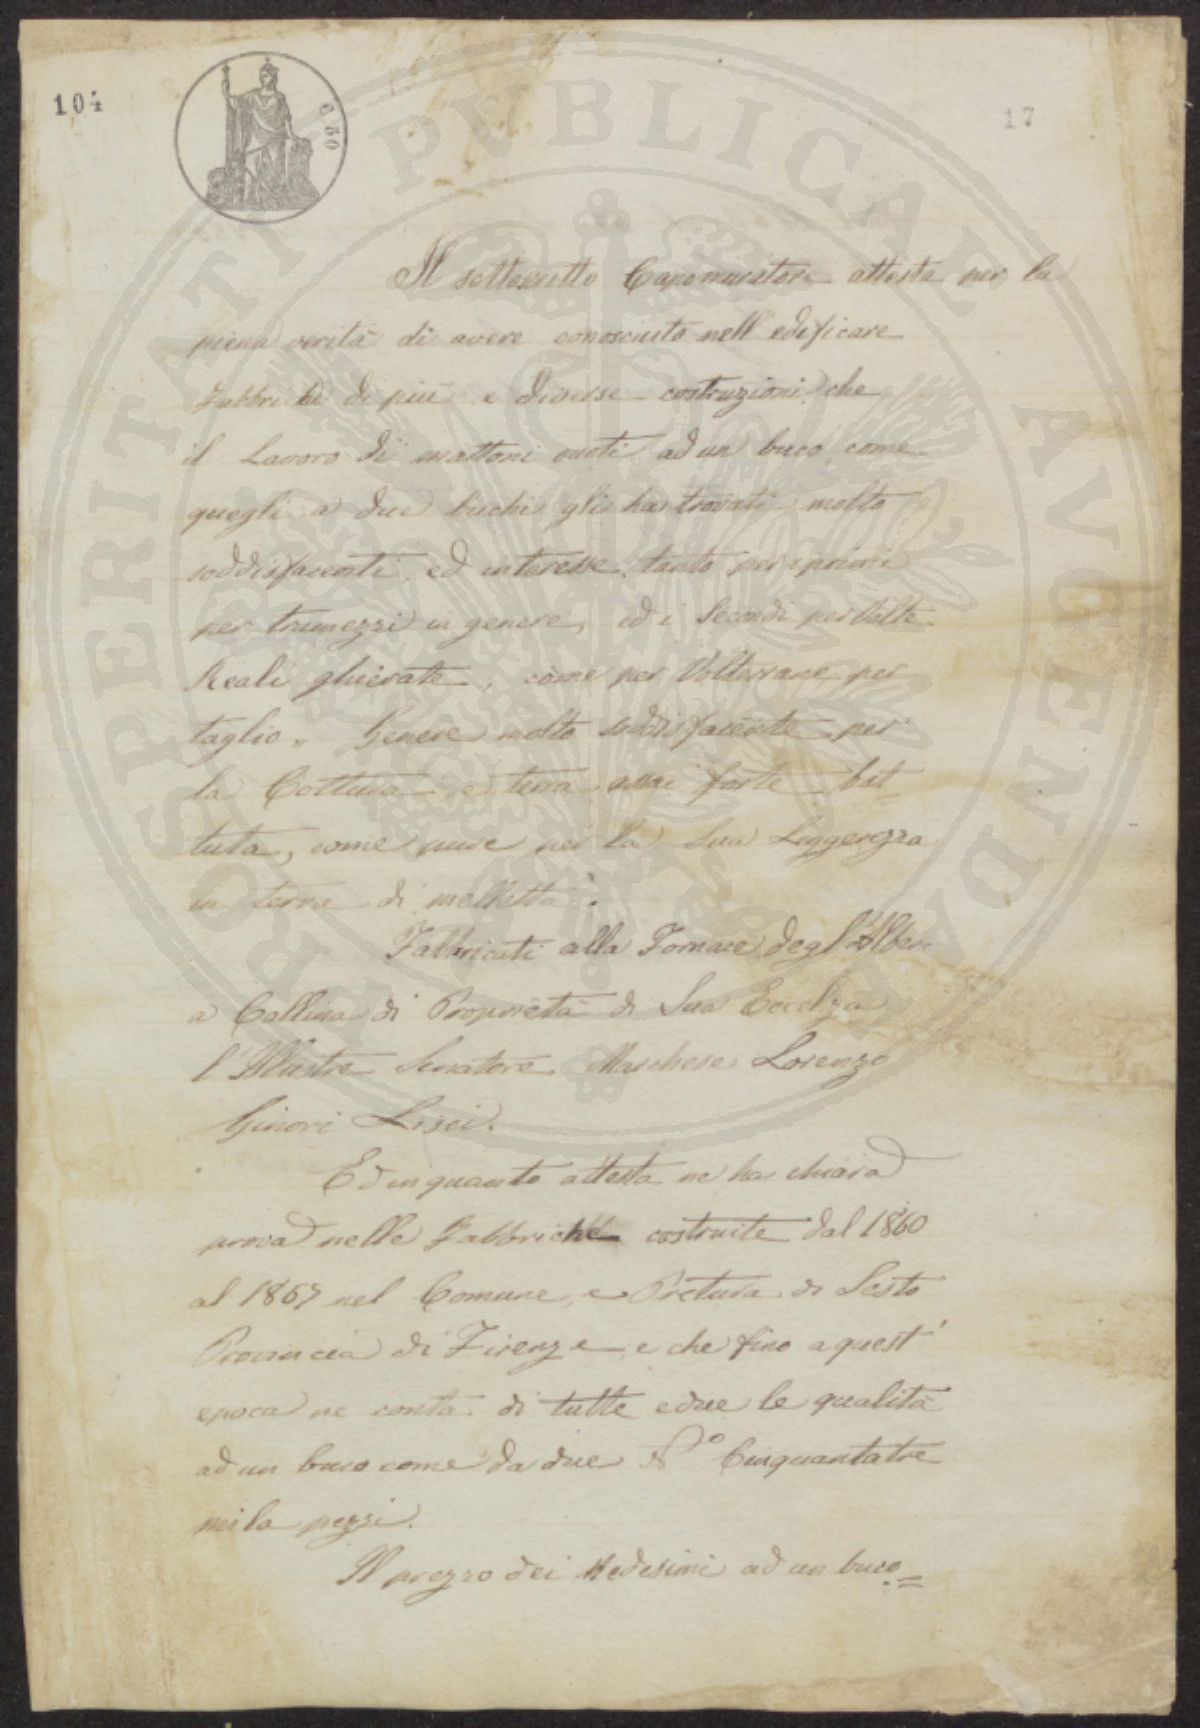 104
C 50
17
PROSPERITATI PVBLICAE AVGENDAE
Il sottoscritto Capomuratore attesta per la
piena verità di avere conosciuto nell'edificare
Fabbriche di più e diverse costruzioni che
il Lavoro di mattoni vuoti ad un buco, come
quegli a due buchi gli ha trovati molto
soddisfacenti, ed interesse, tanto per i primi
per tramezzi in genere, ed i Secondi per Volte
Reali ghierate, come per Volterrane per
taglio, Genere molto soddisfacente per
la Cottura e terra assai forte bat-
tuta, come pure per la Sua Leggerezza
in terra di melletta.
Fabbricati alla Fornace degl'Alberi
a Collina di Proprietà di Sua Eccelza
l'Illustre Senatore Marchese Lorenzo
Ginori Lisci.
Ed in quanto attesta ne ha chiara
prova nelle Fabbriche costruite dal 1860
al 1867 nel Comune, e Pretura di Sesto
Provincia di Firenze e che fino a quest'
epoca ne conta di tutte e due le qualità
ad un buco come da due N.º Cinquantatre
mila pezzi.
Il prezzo dei Medesimi ad un buco =